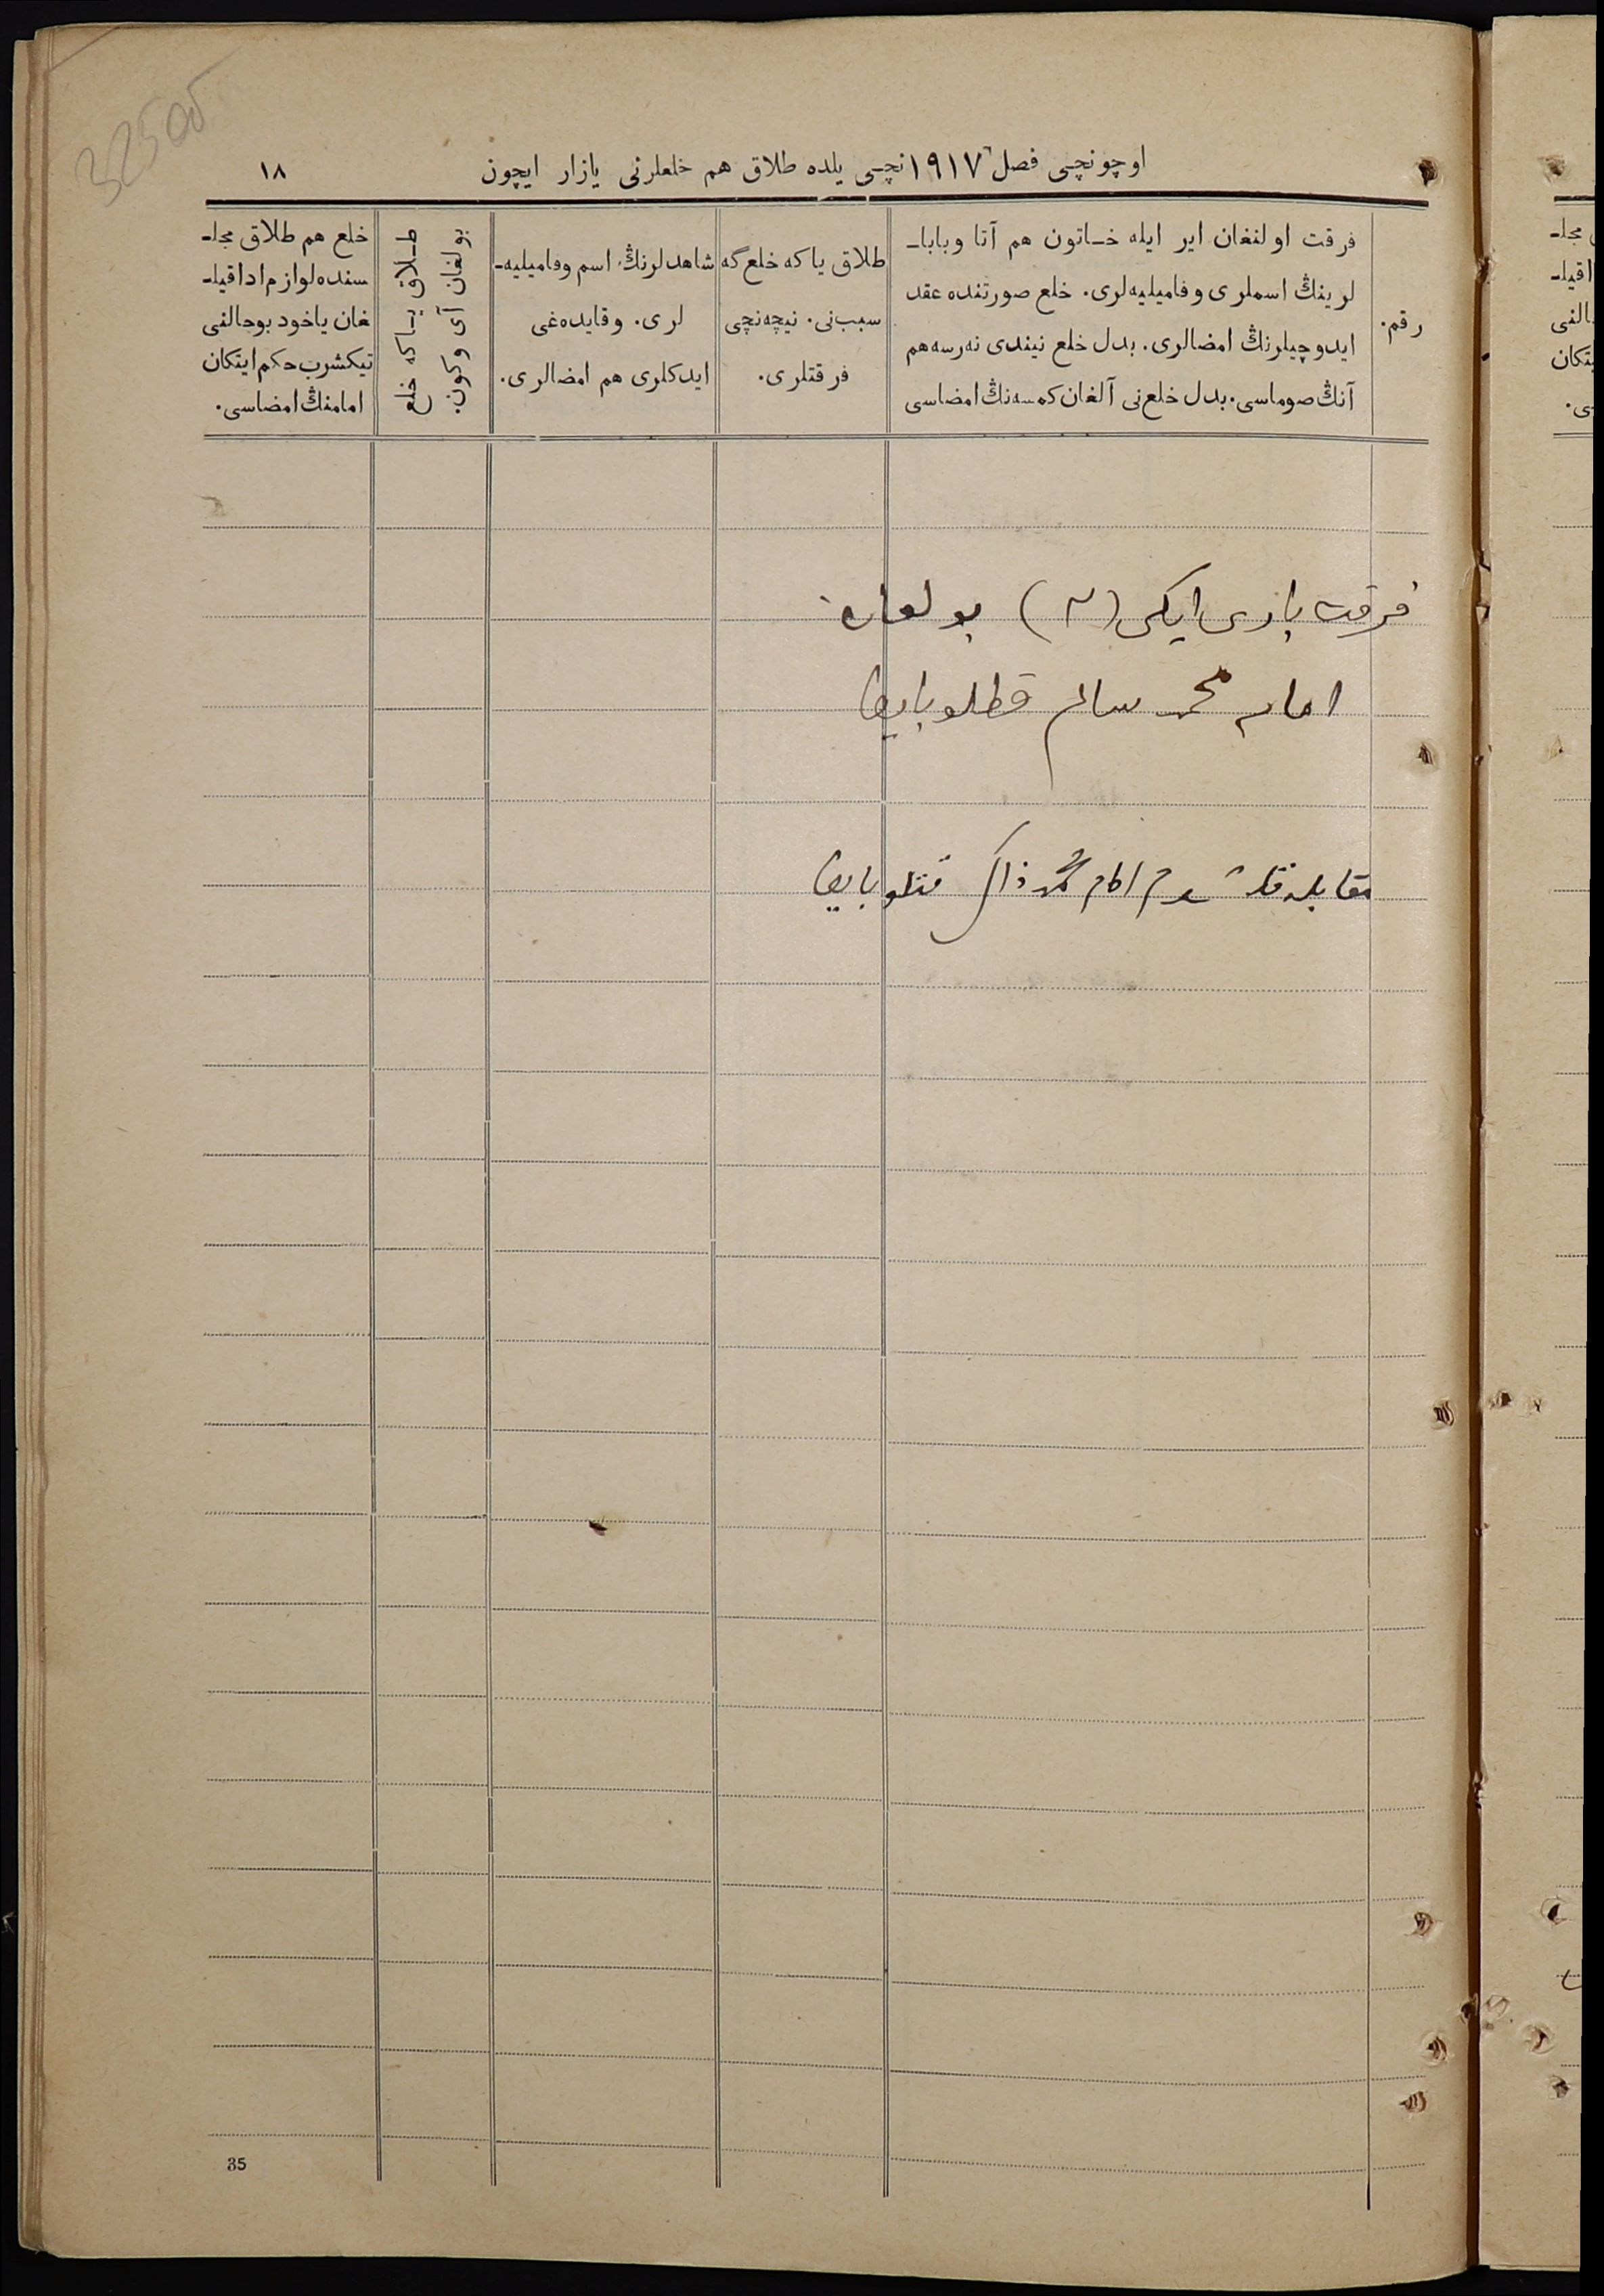 325 об
اوچونچی فصل ١٩١٧نچی یلده طلاق هم خلعلرنی یازار ایچون
١٨
رقم.
فرقت اولنغان ایر ایله خـاتون هم آتا وباباـ
لرینڭ اسملری وفامیلیه‌لری. خلع صورتنده عقد
ایدوچیلرنڭ امضالری. بدل خلع نیندی نه‌رسه هم
آنڭ صوماسی. بدل خلع‌نی آلغان کمسه‌نڭ امضاسی
طلاق یاکه خلع گه
سبب‌نی. نیچه‌نچی
فرقتلری.
شاهدلرنڭ اسم وفامیلیه‌ـ
لری. وقایده‌غی
ایدکلری هم امضالری.
طـلاق یـاکه خلع
بولغان آی وکون.
خلع هم طلاق مجلـ
سنده لوازم ادا قیلـ
غان یاخود بوحالنی
تیکشرب حکم ایتکان
امامنڭ امضاسی.
فرقت باری ایکی (٢) بولغان
امام محمد سالم قطلوبایف
مقابله قلد امام محمد ذاکر قتلوبایف
35